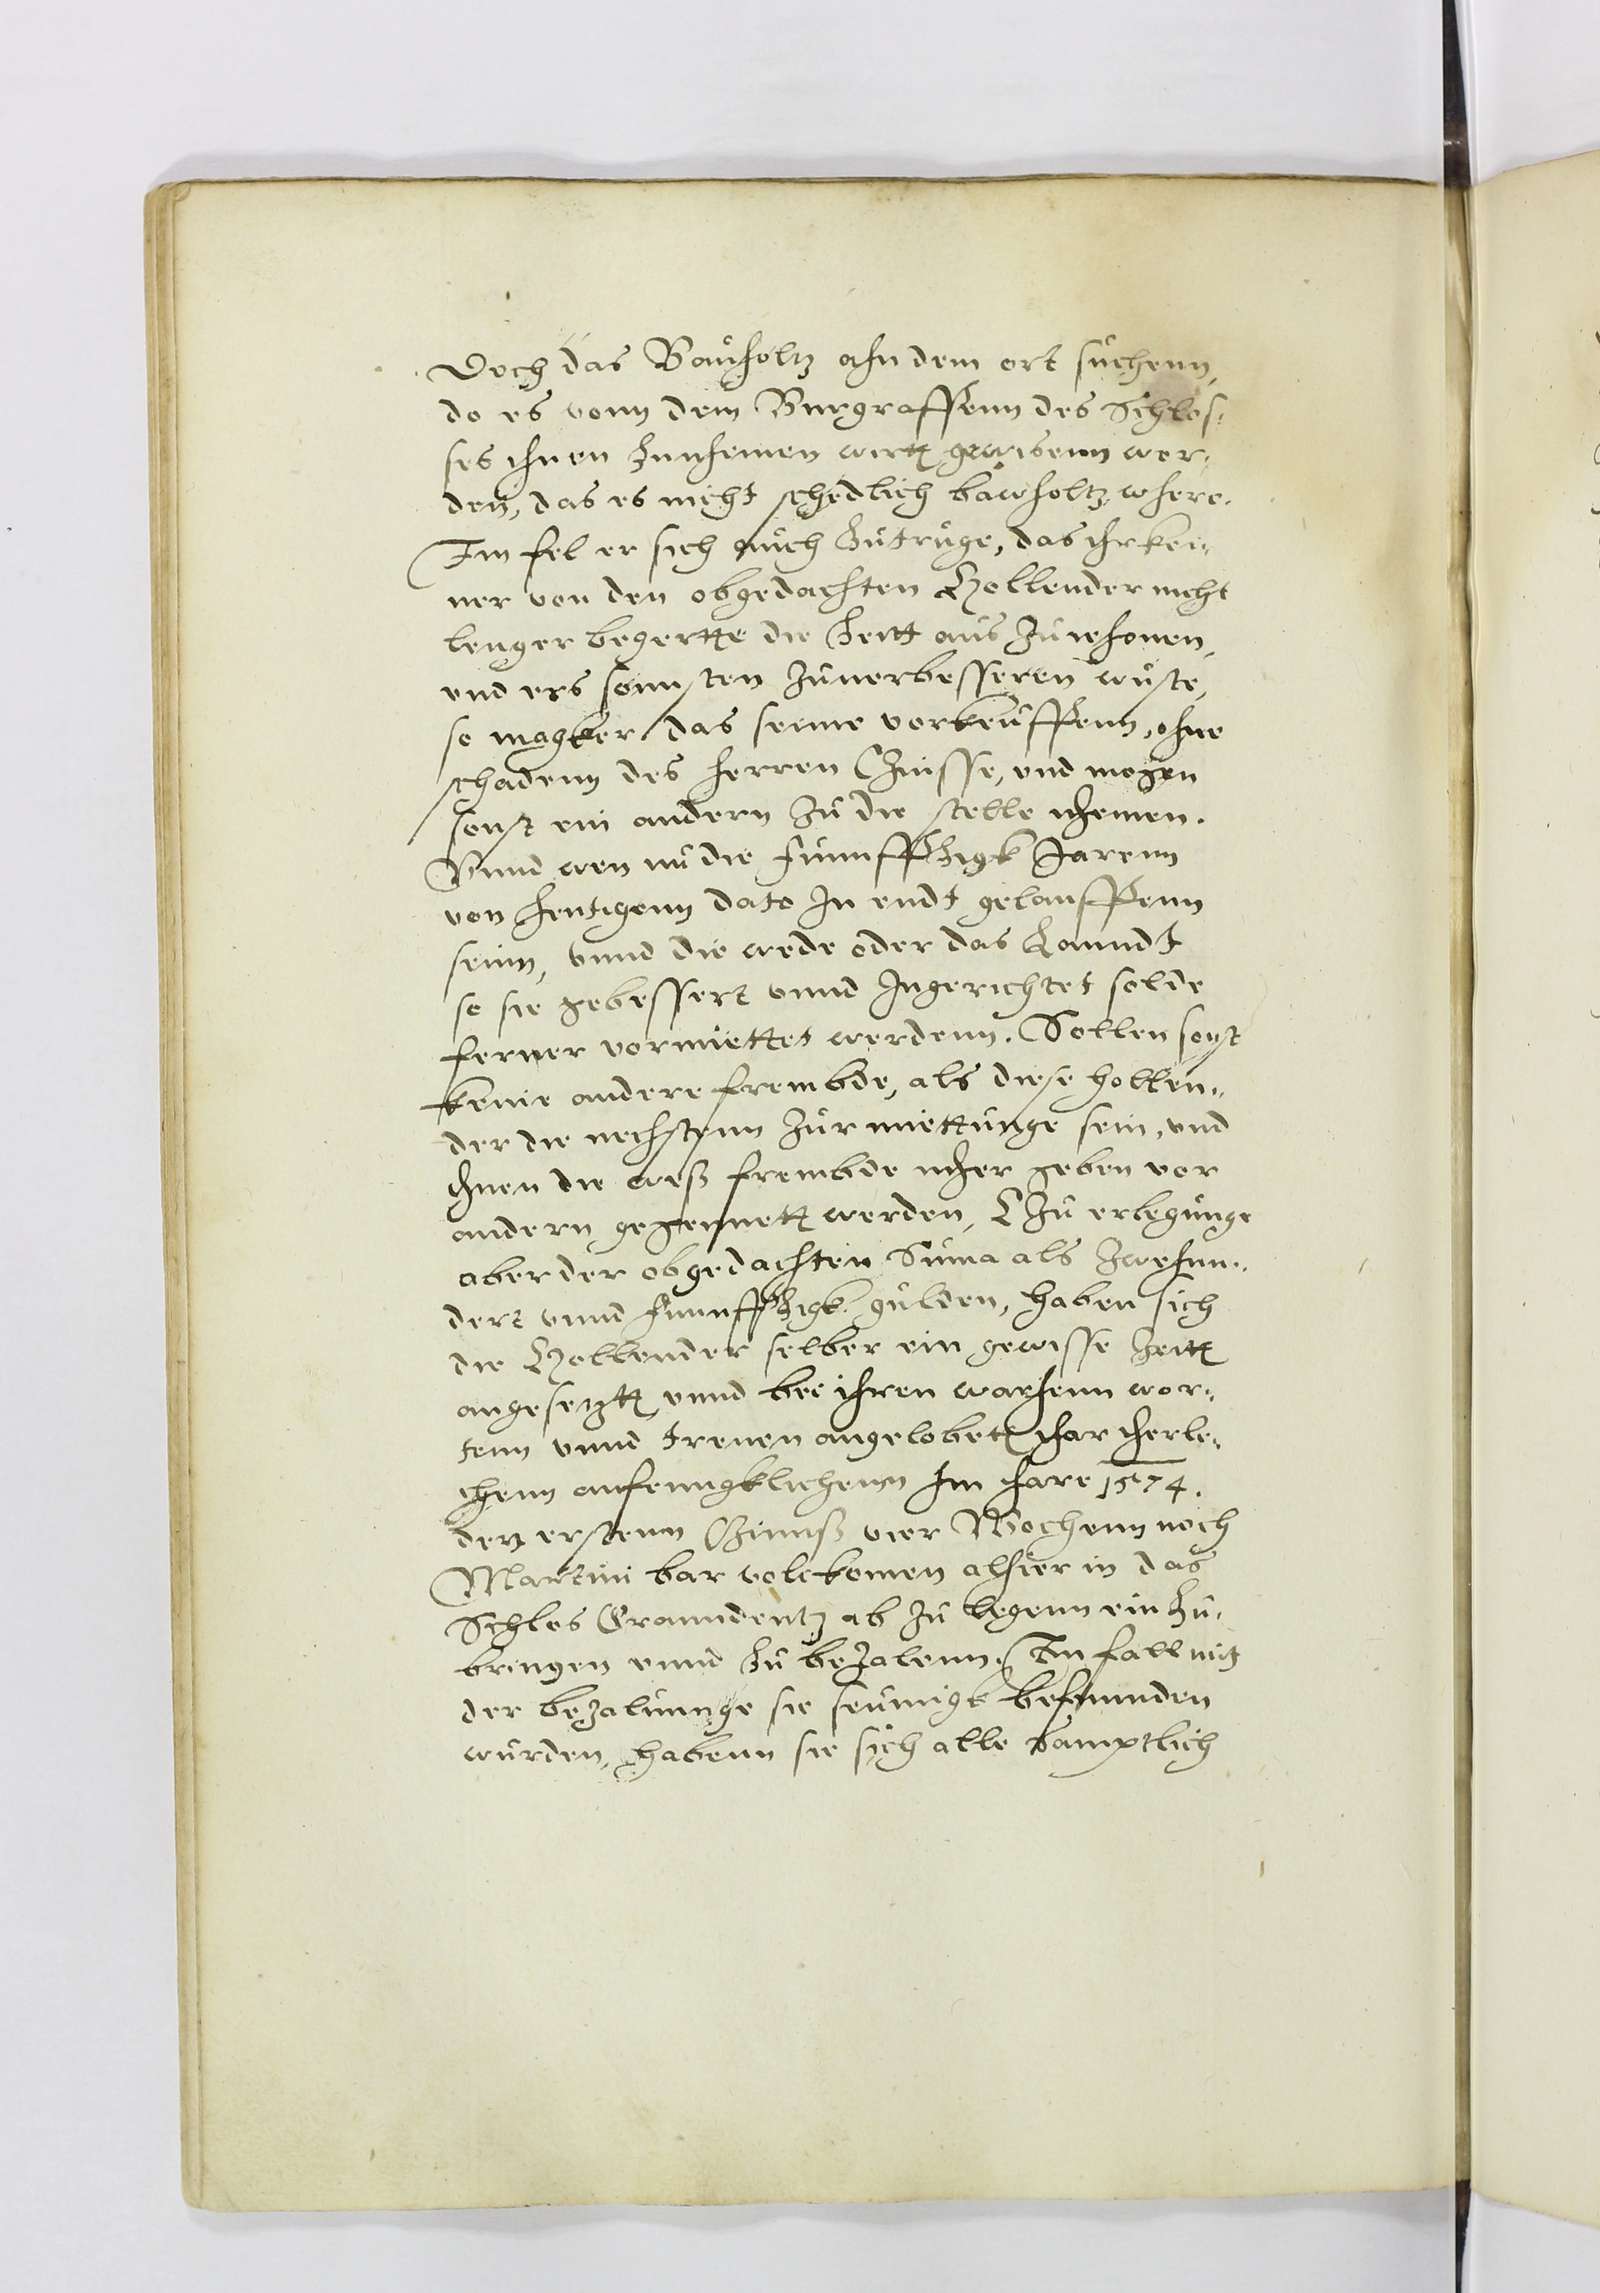 Doch das Bauholtz ahn dem ort suchenn,
do es vonn dem Burgraffenn des Schlos¬
ses ihnen zunhemen wirtt gewisenn wer¬
den, das es nicht schedlich bawholtz where.
Im fel er sich auch zutruge, das ihrkei¬
ner von den obgedachten Hollender nicht
lenger begertte die Zeitt aus zuwhonen,
und ers sonnsten zuuerbesseren wuste,
so magker das seine vorkeuffenn, ohne
schadenn des Herren Czinsse, und mogen
sonst ein andern zu die stelle nhemen.
Vnnd wen nu die funnffzigk Jarenn
von heutigenn dato In endt gelauffenn
seinn, vnnd die wede oder das Lanndt
so sie gebessert vnnd Ingerichtet solde
ferner vormiettet werdenn. Sollen sonst
keine andere frembde, als diese hollen¬
der die nechstenn zur miettunge sein, und
Ihnen die wess frembde nher geben vor
andern gegennett werden, Czu erlegunge
aber der obgedachten Suma als zwehun¬
dert vnnd funnffzigk gulden, haben sich
die Hollender selber ein gewisse Zeitt
angesetztt vnnd bei ihren warhenn wor¬
tenn vnnd treuen angelobett Ihar Iherle¬
chenn anfenngklichenn Im Ihare 1574.
den erstenn Czinnss vier Wochenn noch
Martini bar volekomen alhier in das
Schlos Graunndentz ab zu legenn ein zu¬
bringen vnnd zu bezalenn. Im fall mit
der bezalunnge sie seumigk befunnden
wurden, habenn sie sich alle samptlich